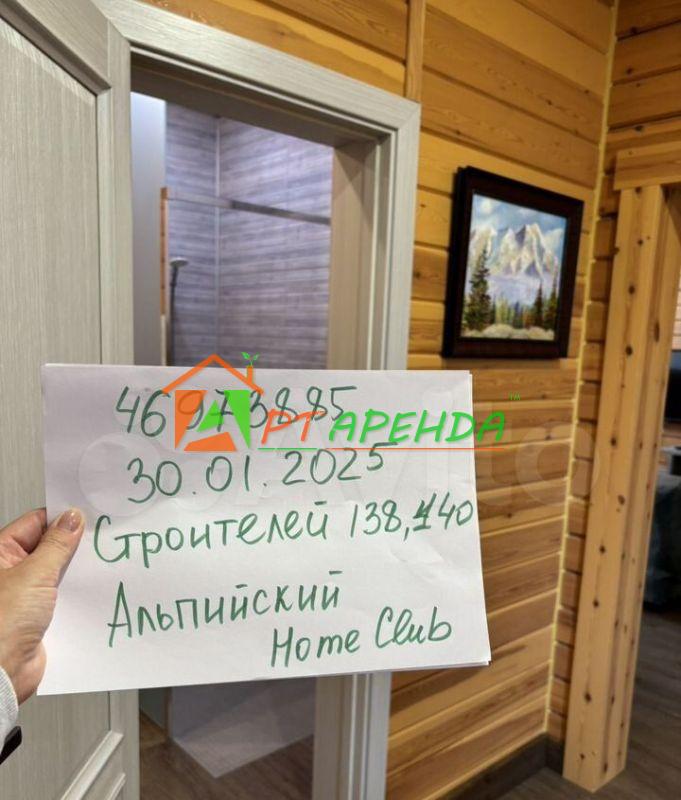 46973885
АРТ АРЕНДА™
30.01.2025
Строителей 138,140
Альпийский
Home Club
Avito